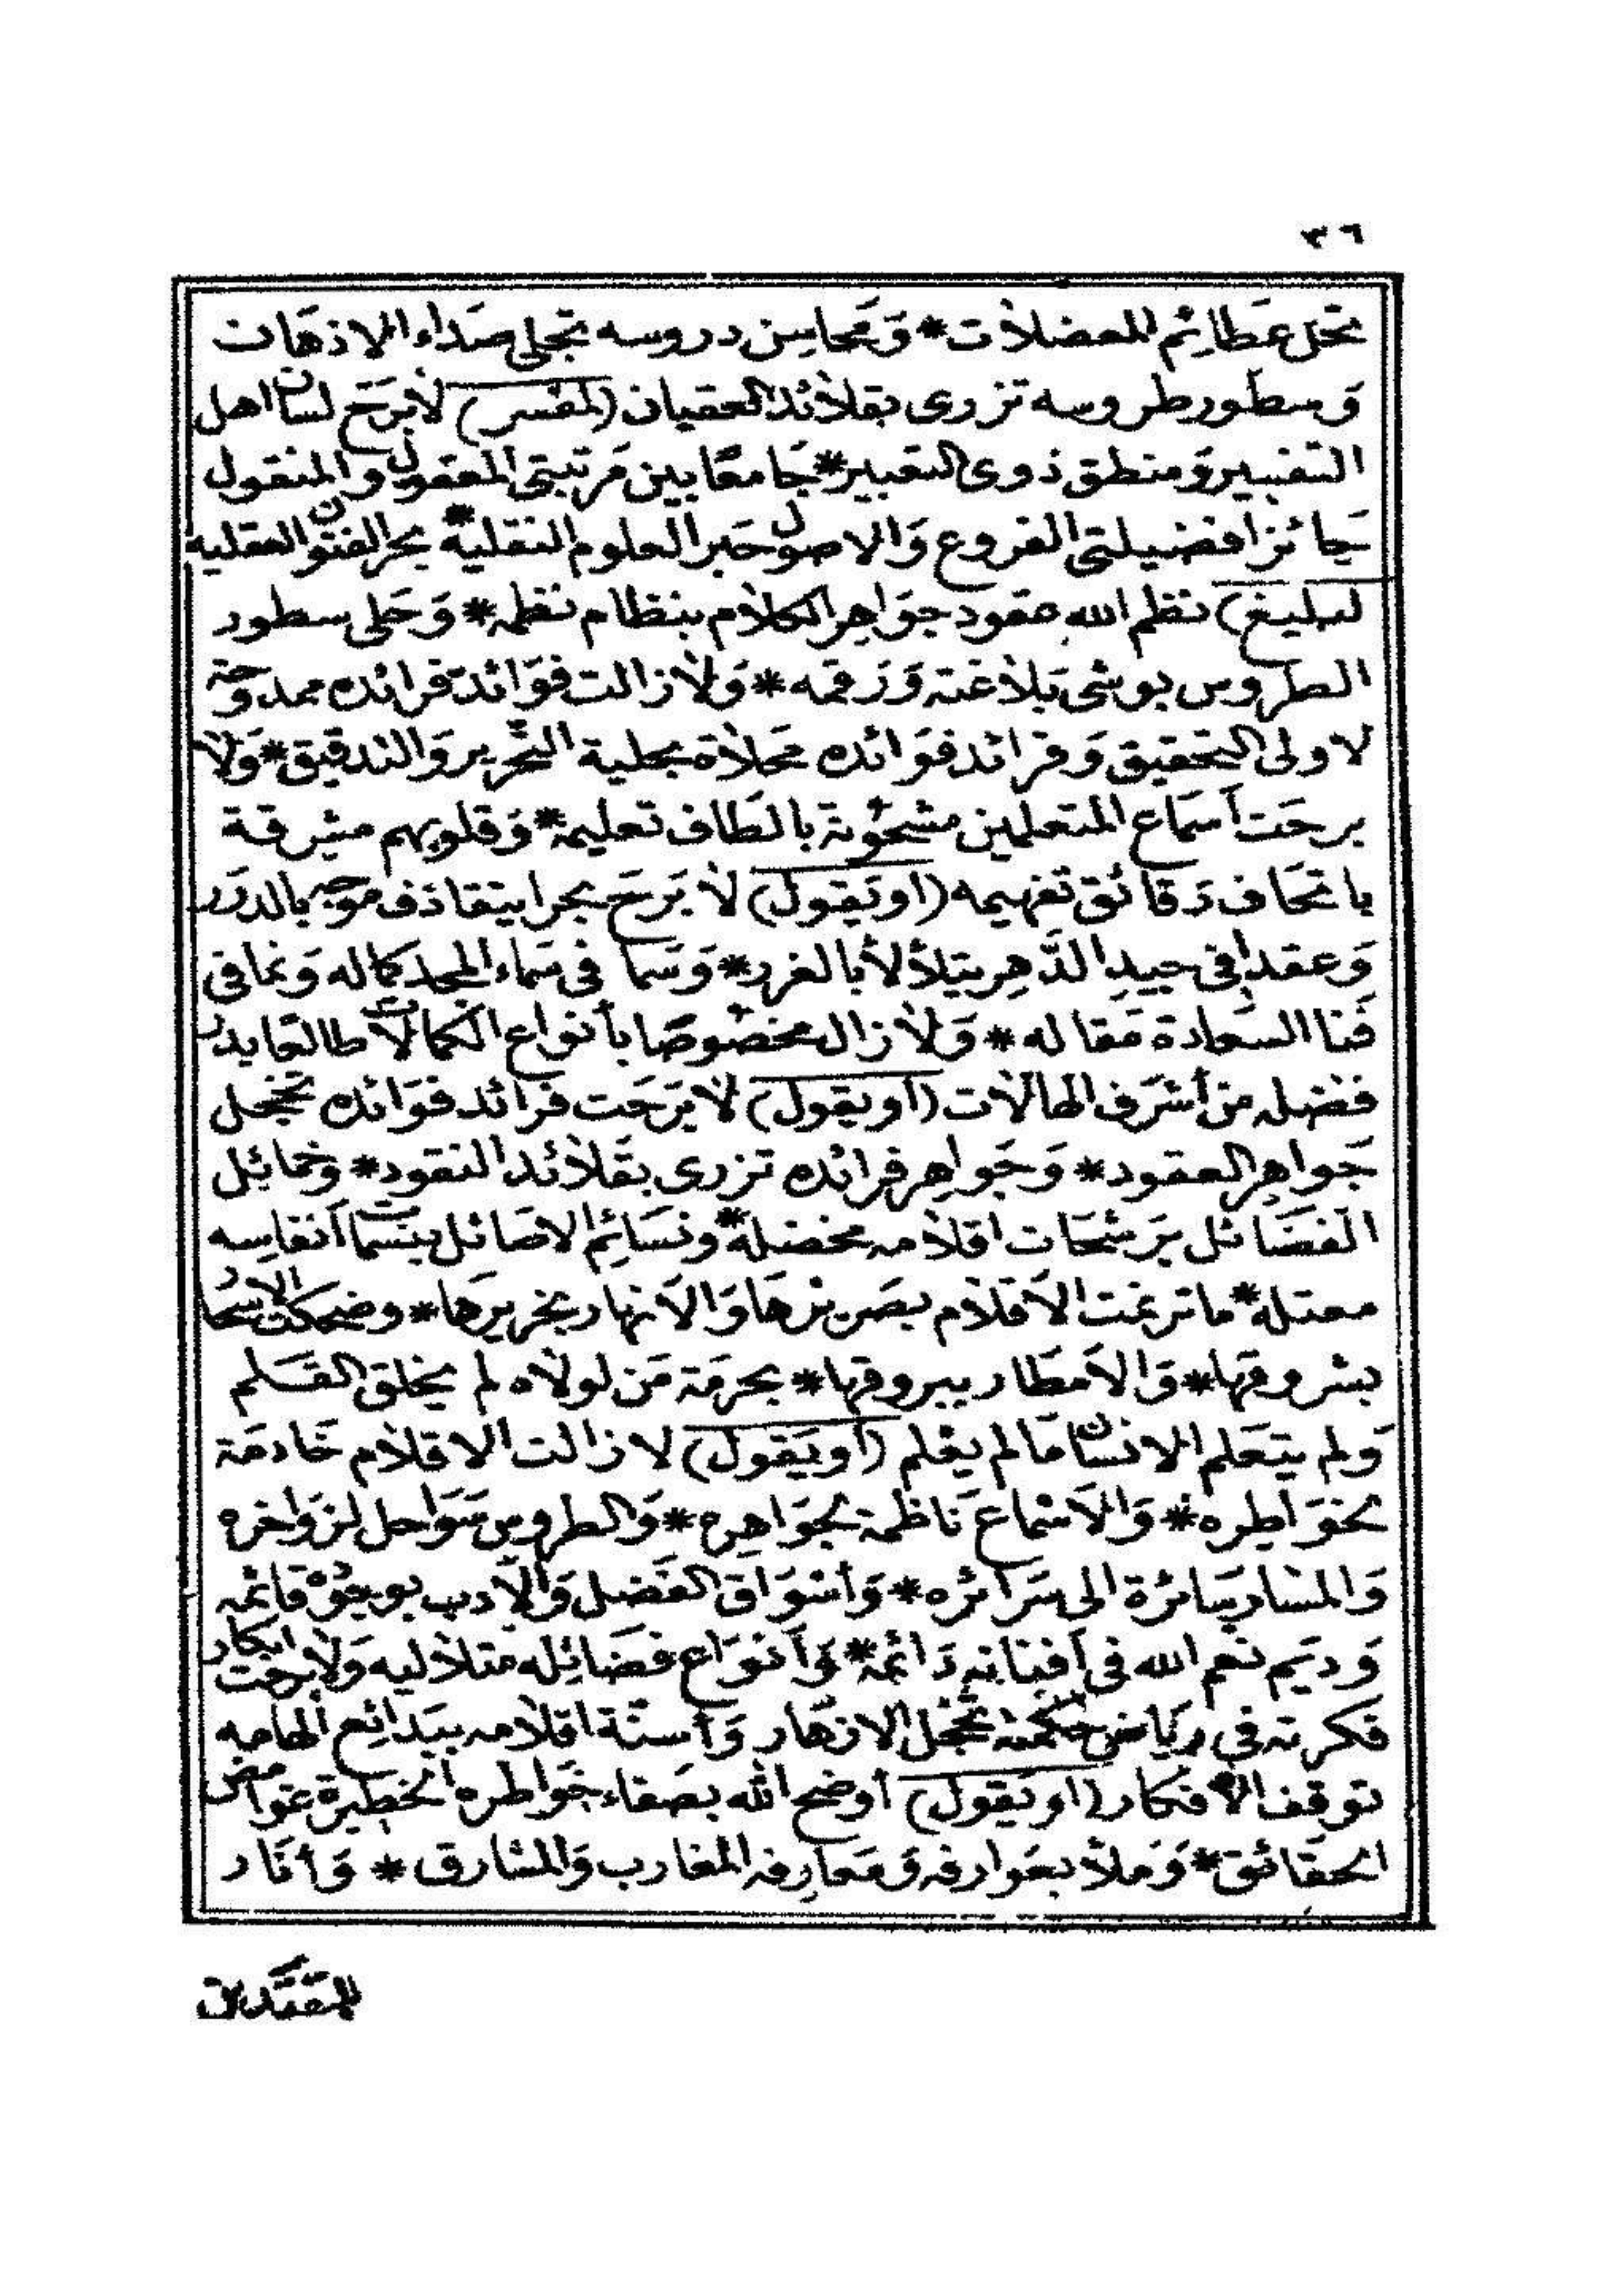 ٣٦
تحل عظائم المعضلات * وَمحاسِن دروسه تجلى صَداء الاذهان
وَسطور طروسه تزرى بقلائد العقيان (لمفسر) لا بَرحَ لسان اهل
التفسير وَمنطق ذوى التعبير * جَامعًا بين مَرتبتى المعقول والمنقول
حَائزا فضيلتى الفروع وَالاصول حَبر العلوم النقلية * بحر الفنون العقلية
(لبليغ) نظم الله عقود جوَاهِر الكلام بنظام نظمه * وَحَلى سطور
الطروس بوشى بَلاغته وَرَقمه * وَلا زالت فوَائد فرائده ممدوحة
لاولى التحقيق وَفرائد فوَائده محَلاة بحلية التحرير وَالتدقيق * وَلا
برحَت أسمَاع المتعلمين مشحُونة بالطَاف تعليمه * وَقلوبهم مشرقة
باتحَاف دَقائق تفهيمه (او يَقول) لا بَرحَ بحرا يتقاذف موجه بالدرَر
وَعقدا فى جيدِ الدَّهِر يتلألأ بالغرر * وَسَما فى سَماء المجد كماله وَنما فى
فنا السعادة مَقاله * وَلا زال مخصُوصًا بأنواع الكمالات طالعا بدر
فضله من أشرَف الهالات (أو يقول) لا بَرَحَت فرائد فوَائده تخجل
جَواهِر العقود * وَجَواهِر فرائده تزرى بقَلائد النقود * وخمائِل
الفضَائل برَشحَات اقلامه مخضلة * ونسَائِم الاصَائل بنسَمات أنفاسِه
معتلة * ما ترنمت الأقلام بصَريرهَا وَالأنهار بخريرهَا * وضحكت الاسحار
بشروقهَا * وَالأمطَار ببروقها * بحرمَة مَن لولاه لم يخلق القَلم
وَلم يتعَلم الانسَان مَا لم يعْلم (أو يَقول) لا زالت الاقلام خَادمَة
لخوَاطِره * وَالأسمَاع نَاظمة لجوَاهِره * وَالطروس سَوَاحل لزوَاخره
وَالمسَار سَائرة الى سَرَائره * وَأسْوَاق الفَضل وَالأدب بوجوده قائمه
وَديَم نعم الله فى أفنانه دَائمة * وَأنوَاع فضَائِله متلاليه وَلا برحت ابكار
فكرته في ريَاض حكمته تخجل الازهَار وَأسنّة اقلامه ببَدائِع الهَامه
توقف الأفكار (او يَقول) أوضح الله بصَفاء خوَاطره الخطِيرة غوامض
الحقَائق * وَملأ بعَوارفه وَمَعارِفه المغارب وَالمشارق * وَأنَار